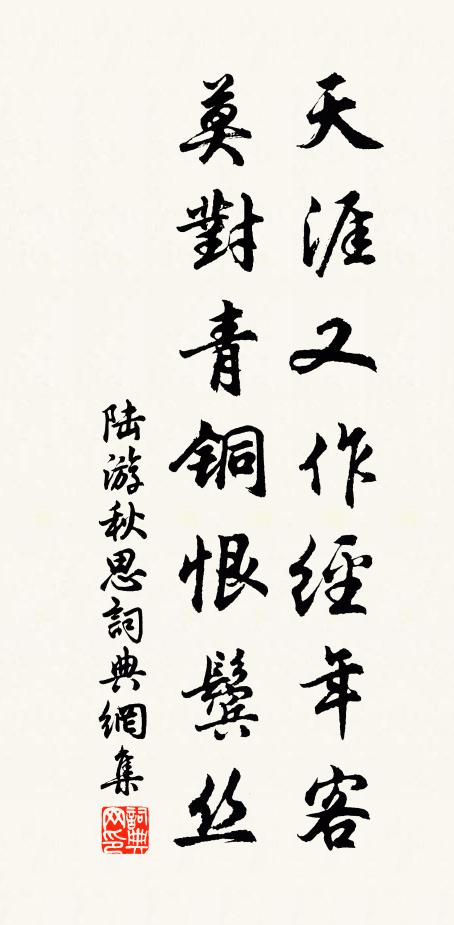 天涯又作經年客
莫對青銅恨鬓丝
陆游秋思詞典網集
詞典網印